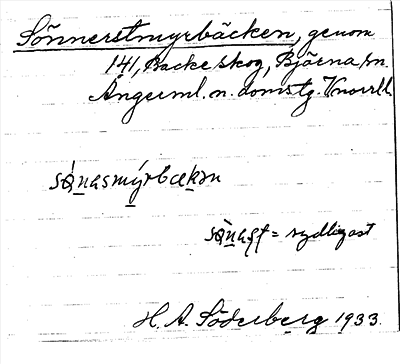 Sönnerstmyrbäcken, genom
141, Backe skog, Björna sn.
Ångerml. n. domstg. Vnorrl.
sǿnasmýrbækən
sǿnast = sydligast
H. A. Söderberg 1933.